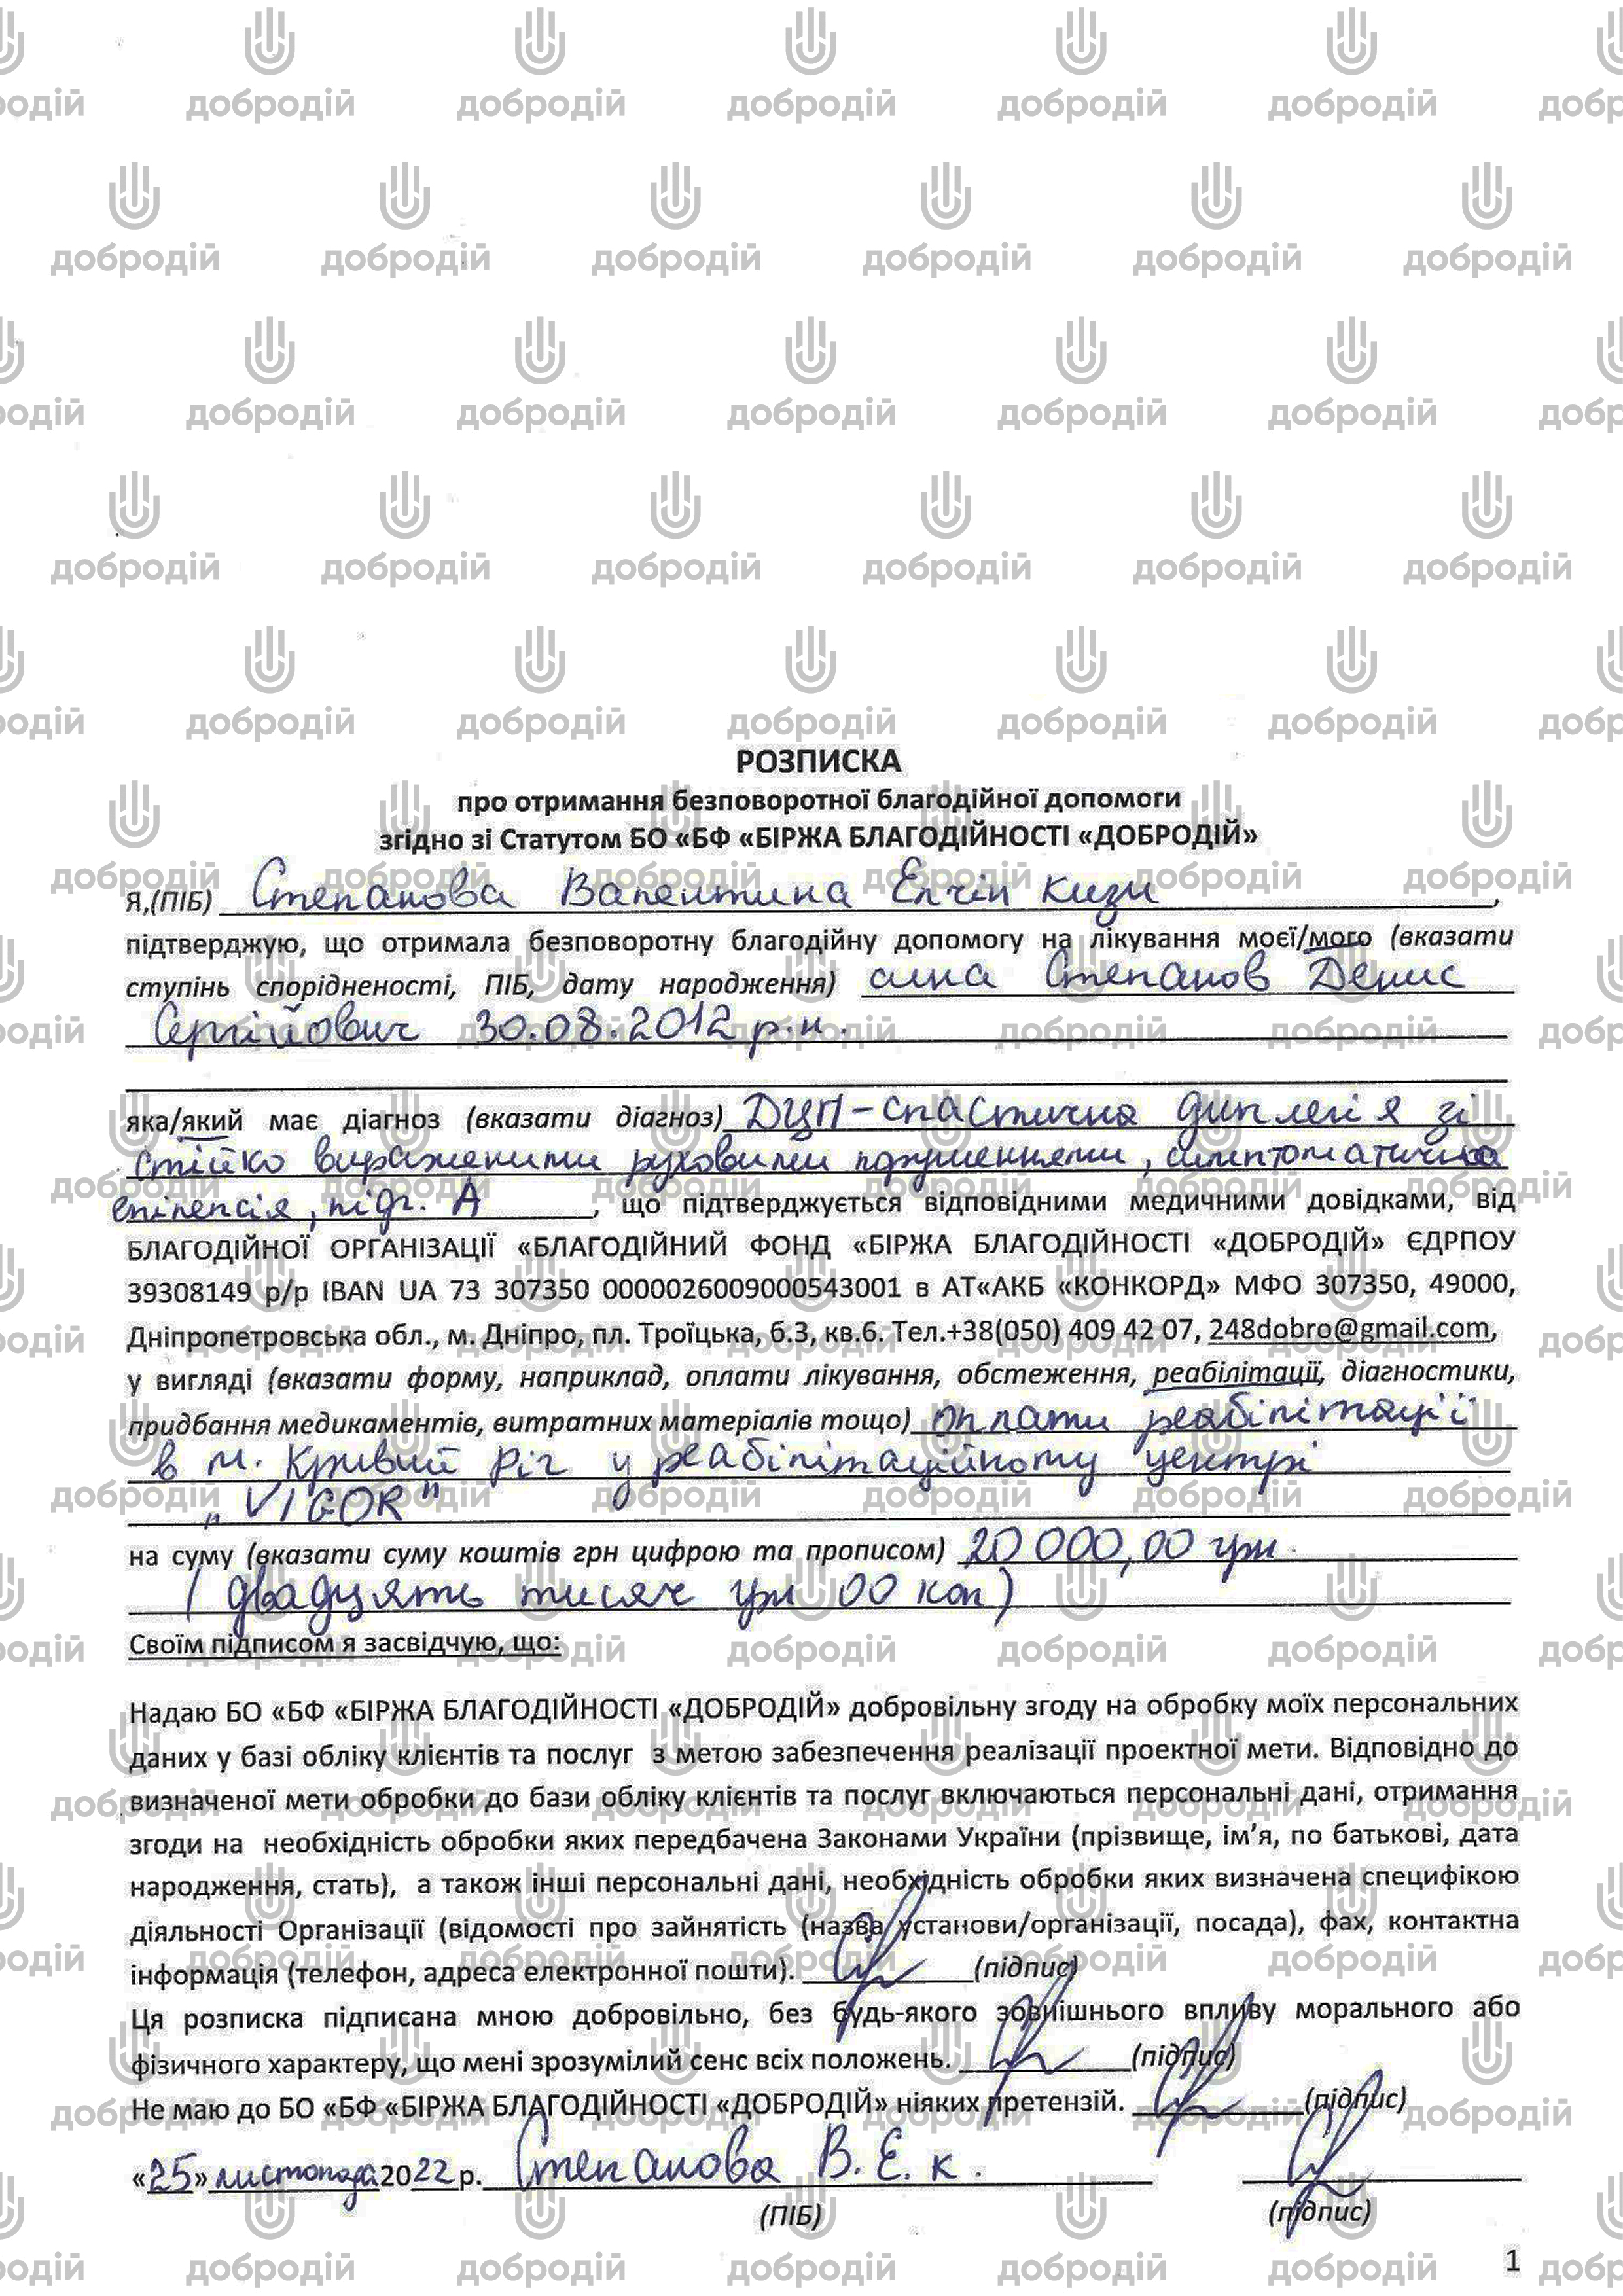 РОЗПИСКА
про отримання безповоротної благодійної допомоги
згідно зі Статутом БО «БФ «БІРЖА БЛАГОДІЙНОСТІ «ДОБРОДІЙ»
Я,(ПІБ) Степанова Валентина Елчін кизи,
підтверджую, що отримала безповоротну благодійну допомогу на лікування моєї/мого (вказати
ступінь спорідненості, ПІБ, дату народження) сина Степанов Денис
Сергійович 30.08.2012 р.н.
яка/який має діагноз (вказати діагноз) ДЦП-спастична диплегія зі
стійко вираженими руховими порушеннями, симптоматична
епілепсія, підг. А, що підтверджується відповідними медичними довідками, від
БЛАГОДІЙНОЇ ОРГАНІЗАЦІЇ «БЛАГОДІЙНИЙ ФОНД «БІРЖА БЛАГОДІЙНОСТІ «ДОБРОДІЙ» ЄДРПОУ
39308149 р/р IBAN UA 73 307350 0000026009000543001 в АТ«АКБ «КОНКОРД» МФО 307350, 49000,
Дніпропетровська обл., м. Дніпро, пл. Троїцька, б.3, кв.6. Тел.+38(050) 409 42 07, 248dobro@gmail.com,
у вигляді (вказати форму, наприклад, оплати лікування, обстеження, реабілітації, діагностики,
придбання медикаментів, витратних матеріалів тощо) оплати реабілітації
в м. Кривий Ріг у реабілітаційному центрі
„VIGOR"
на суму (вказати суму коштів грн цифрою та прописом) 20 000,00 грн.
(двадцять тисяч грн 00 коп)
Своїм підписом я засвідчую, що:
Надаю БО «БФ «БІРЖА БЛАГОДІЙНОСТІ «ДОБРОДІЙ» добровільну згоду на обробку моїх персональних
даних у базі обліку клієнтів та послуг з метою забезпечення реалізації проектної мети. Відповідно до
визначеної мети обробки до бази обліку клієнтів та послуг включаються персональні дані, отримання
згоди на необхідність обробки яких передбачена Законами України (прізвище, ім’я, по батькові, дата
народження, стать), а також інші персональні дані, необхідність обробки яких визначена специфікою
діяльності Організації (відомості про зайнятість (назва установи/організації, посада), фах, контактна
інформація (телефон, адреса електронної пошти). (підпис)
Ця розписка підписана мною добровільно, без будь-якого зовнішнього впливу морального або
фізичного характеру, що мені зрозумілий сенс всіх положень. (підпис)
Не маю до БО «БФ «БІРЖА БЛАГОДІЙНОСТІ «ДОБРОДІЙ» ніяких претензій. (підпис)
«25» листопада 2022 р. Степанова В. Е. к.
(ПІБ) (підпис)
1
добродій